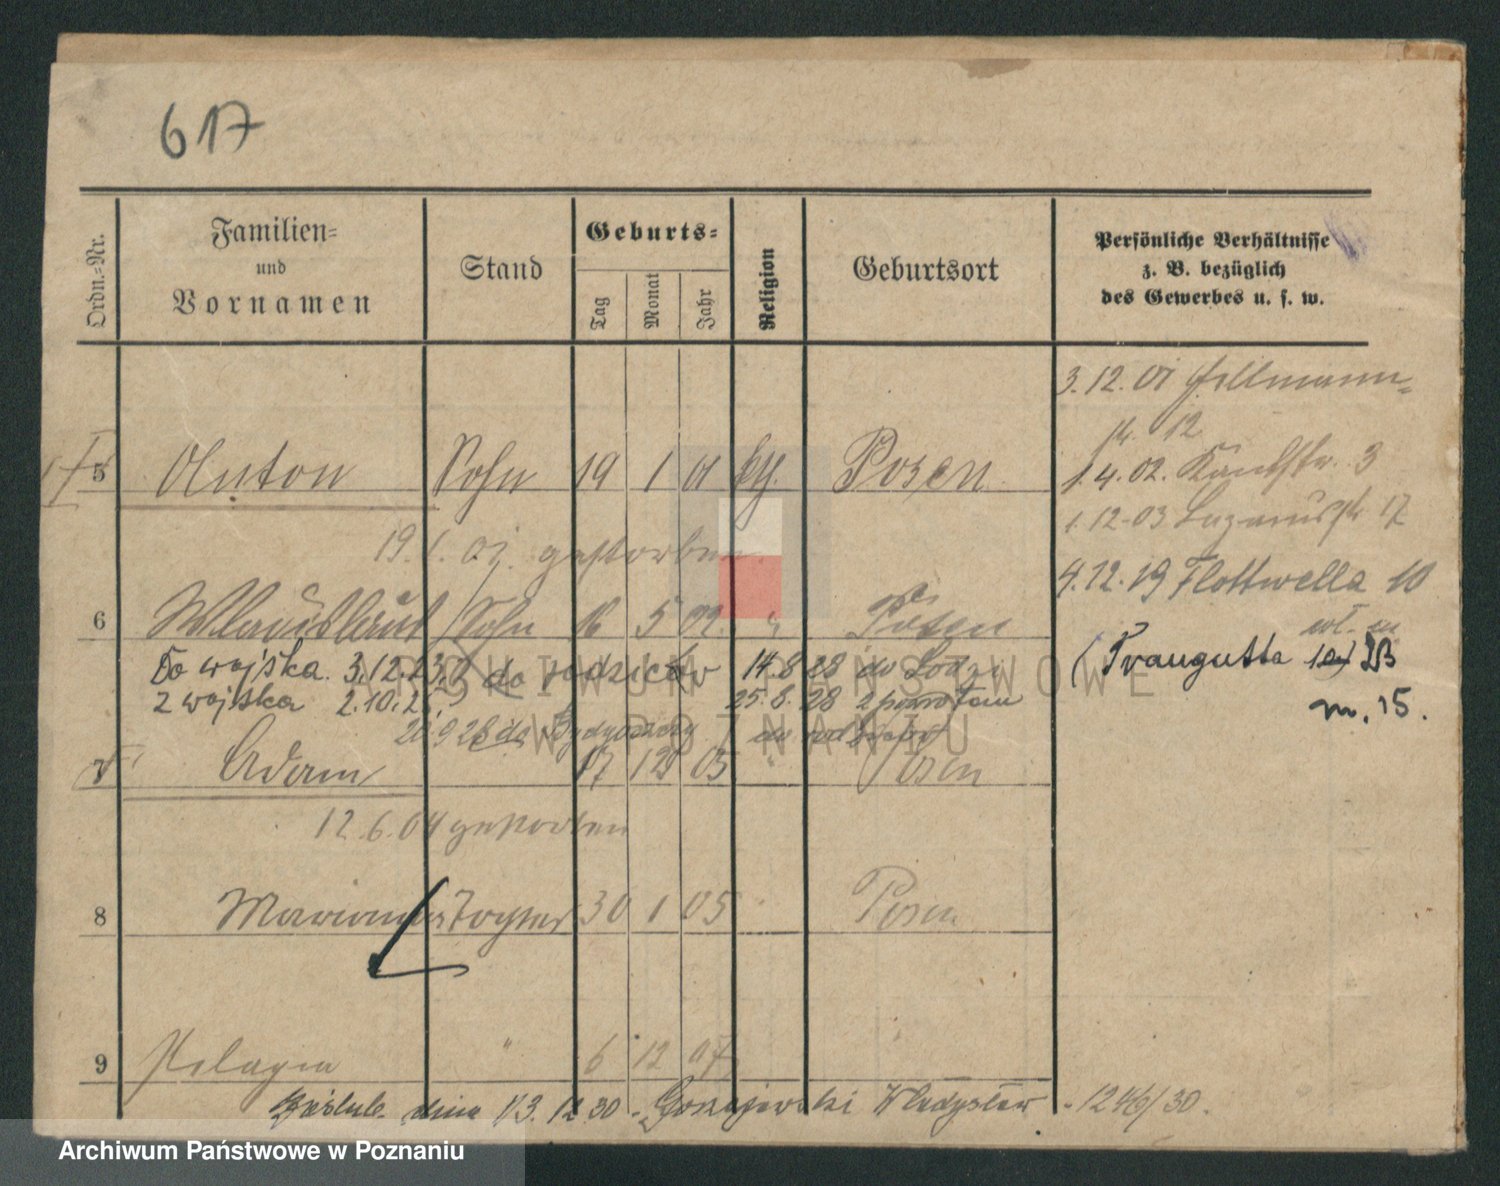 617
Ordn.-Nr.
Familien-
und
Vornamen
Stand
Geburts-
Tag
Monat
Jahr
Religion
Geburtsort
Persönliche Verhältnisse
z. B. bezüglich
des Gewerbes u. s. w.
3.12.01
str. 12
5 Anton Sohn 19 1 01 kth. Posen
1.4.02. 3
1.12.03 Lazarusstr 17
19.1.01. gestorben
4.12.19 Flottwella 10
6 Wladislaus Sohn 16 5 02. " Posen
Do wojska. 3.12.23. do rodziców 14.8.28 do Łodzi
Traugutta 23
m. 15.
z wojska 2.10.25. 25.8.28 z powrotem
20.9.28 do Bydgoszczy do
7 Adam 17 12 03 " Posen
12.6.04 gestorben
8 Marianna Tochter 30 1 05 " Posen
9 Pelagia " 6 12 07
dnia 13.12.30 - Władysław - 1246/30.
ARCHIWUM PAŃSTWOWE
W POZNANIU
Archiwum Państwowe w Poznaniu